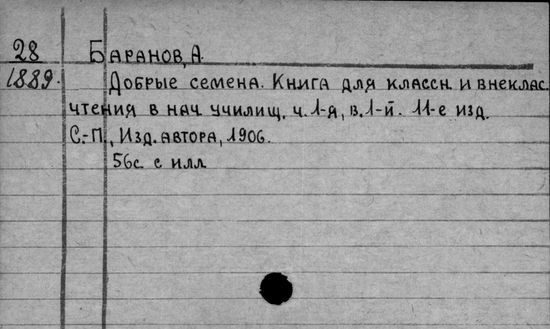 28 Баранов, А.
1889. Добрые семена. Книга для классн. и внеклас.
чтения в нач. училищ. ч. 1-я, в. 1-й. 11-е изд.
С.-П., Изд. автора, 1906.
56с. с илл